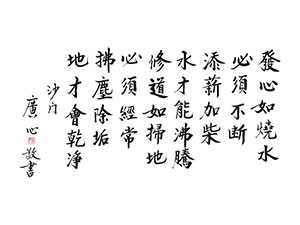 發心如燒水
必須不斷
添薪加柴
水才能沸騰
修道如掃地
必須經常
拂塵除垢
地才會乾淨
沙門
廣心敬書